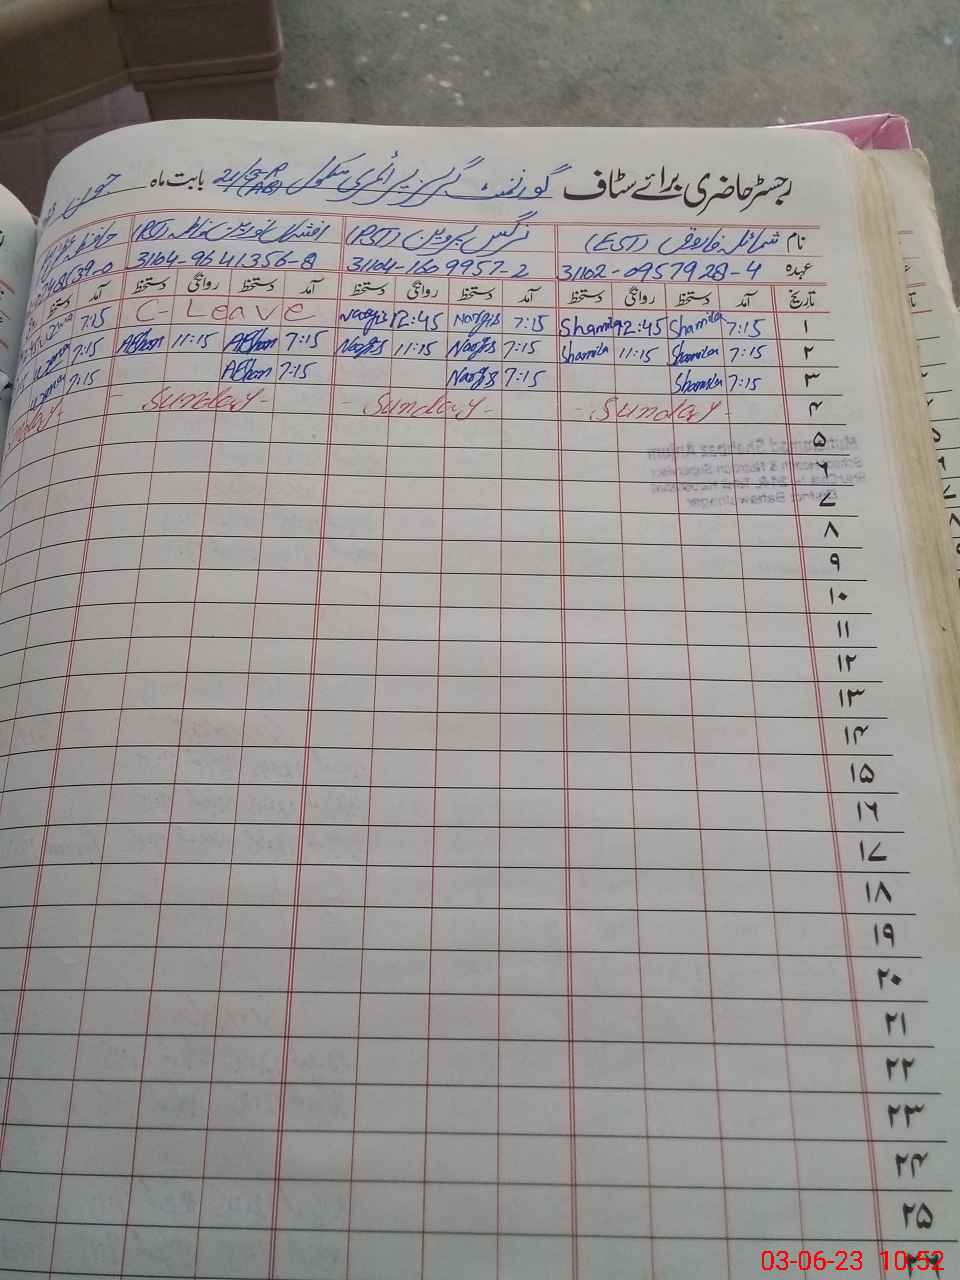 رجسٹر حاضری برائے سٹاف گورنمنٹ گرلز پرائمری سکول بابت ماہ جون
نام شمائلہ فاروق (EST) نرگس پروین (PST) افشاں نورین فاطمہ (PST)
عہدہ 31102-0957928-4 31104-1609957-2 31104-9641356-8
تاریخ آمد دستخط روانگی دستخط آمد دستخط روانگی دستخط آمد دستخط روانگی دستخط آمد دستخط
۱ 7:15 Shamila 12:45 Shamila 7:15 Nargis 12:45 Nargis C-Leave 7:15
۲ 7:15 Shamila 11:15 Shamila 7:15 Nargis 11:15 Nargis 7:15 Afshan 11:15 Afshan 7:15
۳ 7:15 Shamila 7:15 Nargis 7:15 Afshan 7:15
۴ -Sunday- -Sunday- -Sunday- Sunday-
۵
۶
۷
۸
۹
۱۰
۱۱
۱۲
۱۳
۱۴
۱۵
۱۶
۱۷
۱۸
۱۹
۲۰
۲۱
۲۲
۲۳
۲۴
۲۵
03-06-23 10:52